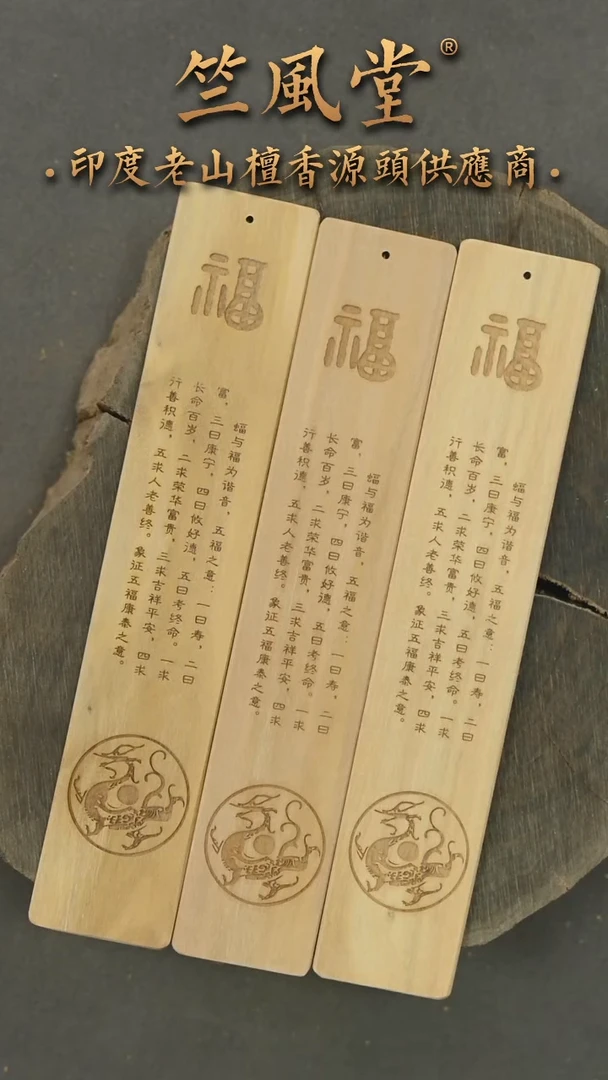 竺風堂®
·印度老山檀香源頭供應商·
福
蝠与福为谐音，五福之意：一曰寿，二曰
富，三曰康宁，四曰攸好德，五曰考终命。一求
长命百岁，二求荣华富贵，三求吉祥平安，四求
行善积德，五求人老善终。象征五福康泰之意。
福
蝠与福为谐音，五福之意：一曰寿，二曰
富，三曰康宁，四曰攸好德，五曰考终命。一求
长命百岁，二求荣华富贵，三求吉祥平安，四求
行善积德，五求人老善终。象征五福康泰之意。
福
蝠与福为谐音，五福之意：一曰寿，二曰
富，三曰康宁，四曰攸好德，五曰考终命。一求
长命百岁，二求荣华富贵，三求吉祥平安，四求
行善积德，五求人老善终。象征五福康泰之意。